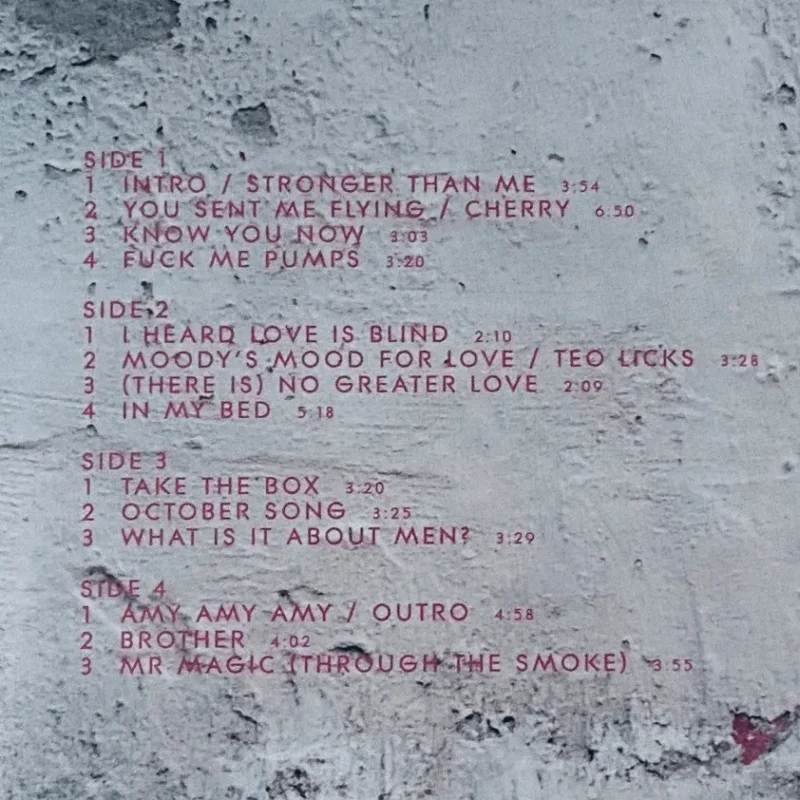 SIDE 1
1 INTRO / STRONGER THAN ME 3:54
2 YOU SENT ME FLYING / CHERRY 6:50
3 KNOW YOU NOW 3:03
4 FUCK ME PUMPS 3:20
SIDE 2
1 I HEARD LOVE IS BLIND 2:10
2 MOODY'S MOOD FOR LOVE / TEO LICKS 3:28
3 (THERE IS) NO GREATER LOVE 2:09
4 IN MY BED 5:18
SIDE 3
1 TAKE THE BOX 3:20
2 OCTOBER SONG 3:25
3 WHAT IS IT ABOUT MEN? 3:29
SIDE 4
1 AMY AMY AMY / OUTRO 4:58
2 BROTHER 4:02
3 MR MAGIC (THROUGH THE SMOKE) 3:55